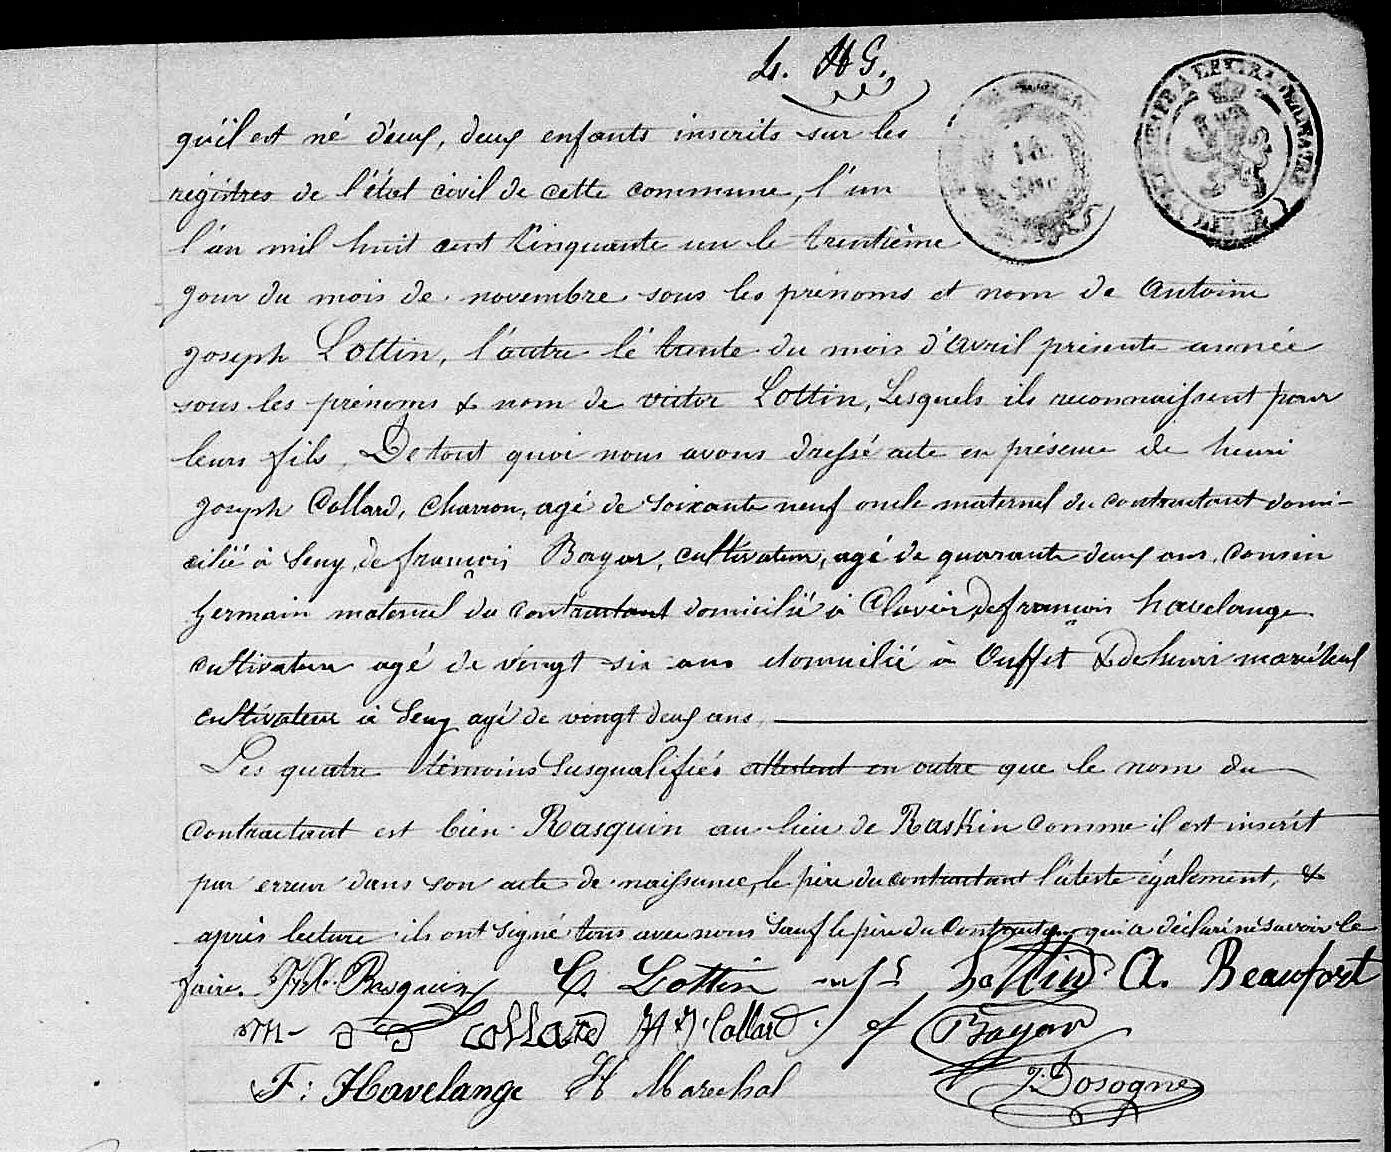 L. HG.
qu'il est né d'eux, deux enfants inscrits sur les
régistres de l'état civil de cette commune, l'un
l'an mil huit cent Cinquante un le trentième
jour du mois de novembre sous les prénoms et nom de Antoine
joseph Lottin, l'autre le trente du mois d'avril présente année
sous les prénoms & nom de victor Lottin, Lesquels ils reconnaissent pour
leurs fils. De tout quoi nous avons dressé acte en présence de henri
joseph Collard, Charron, agé de soixante neuf oncle maternel du contractant domi-
cilié à Seny, de françois Bayar, cultivateur, agé de quarante deux ans, Cousin
germain maternel du contractant domicilié à Clavier, de françois havelange
cultivateur agé de vingt six ans domicilié à Ouffet & de henri maréchal
cultivateur à Seny agé de vingt deux ans.
Les quatre témoins susqualifiés attestent en outre que le nom du
Contractant est bien Rasquin au lieu de Raskin comme il est inscrit
par erreur dans son acte de naissance, le père du contractant l'ateste également, &
après lecture ils ont signé tous avec nous sauf le père du Contractant qui a déclaré ne savoir le
faire. Rasquin C. Lottin Lottin A. Beaufort
m- collard H J Collard f Bayar
F: Havelange H Marechal Dosogne